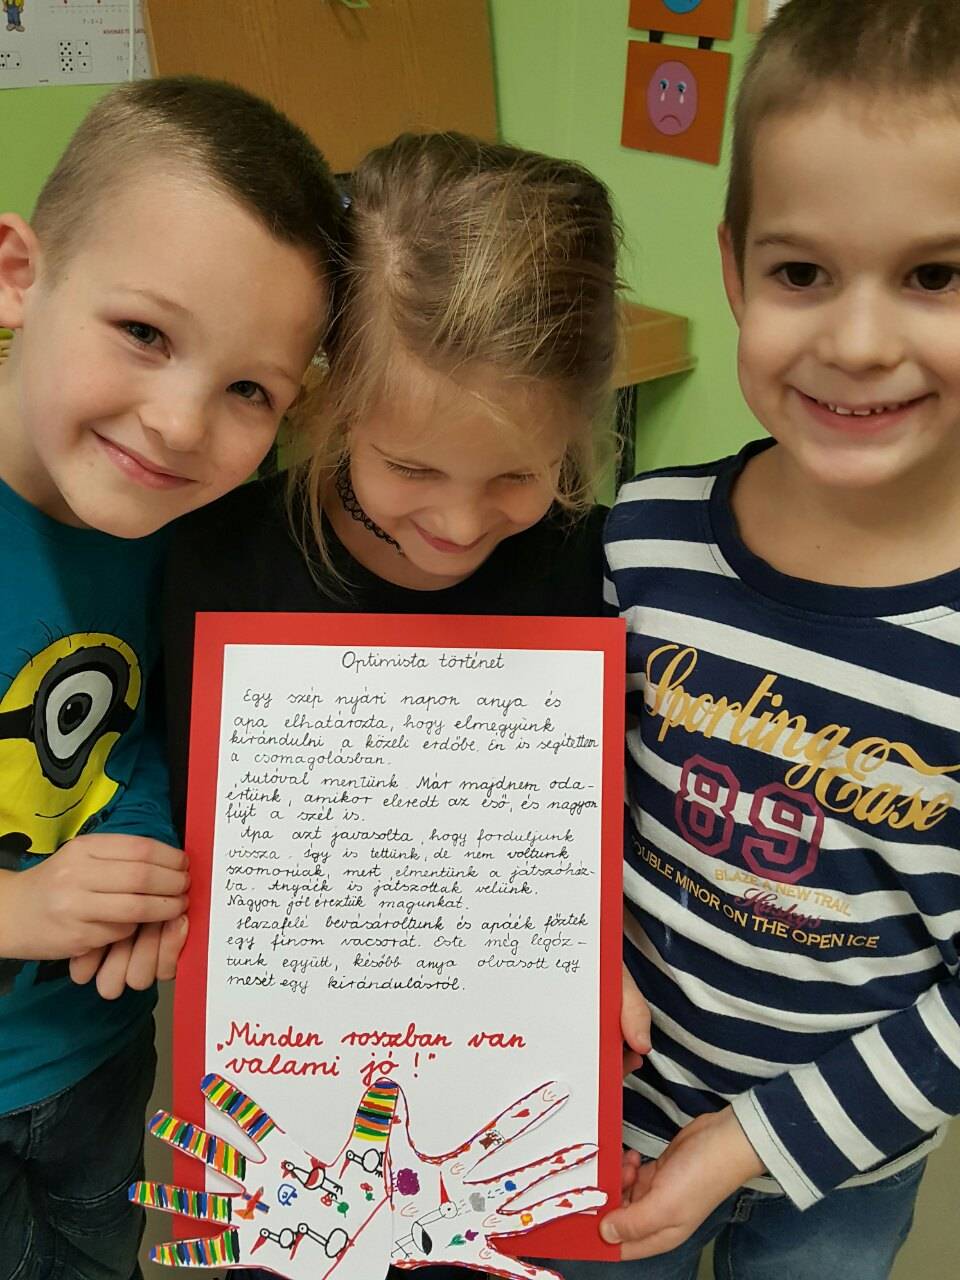 7 - 5 = 2
Optimista történet
Egy szép nyári napon anya és
apa elhatározta, hogy elmegyünk
kirándulni a közeli erdőbe. Én is segítettem
a csomagolásban.
Autóval mentünk. Már majdnem oda-
értünk, amikor eleredt az eső, és nagyon
fújt a szél is.
Apa azt javasolta, hogy forduljunk
vissza. Így is tettünk, de nem voltunk
szomorúak, mert elmentünk a játszóház-
ba. Anyáék is játszottak velünk.
Nagyon jól éreztük magunkat.
Hazafelé bevásároltunk és apáék főztek
egy finom vacsorát. Este még legóz-
tunk együtt, később anya olvasott egy
mesét egy kirándulásról.
„Minden rosszban van
valami jó!"
Sporting
Ease
89
DOUBLE MINOR ON THE OPEN ICE
BLAZE A NEW TRAIL
Huskys